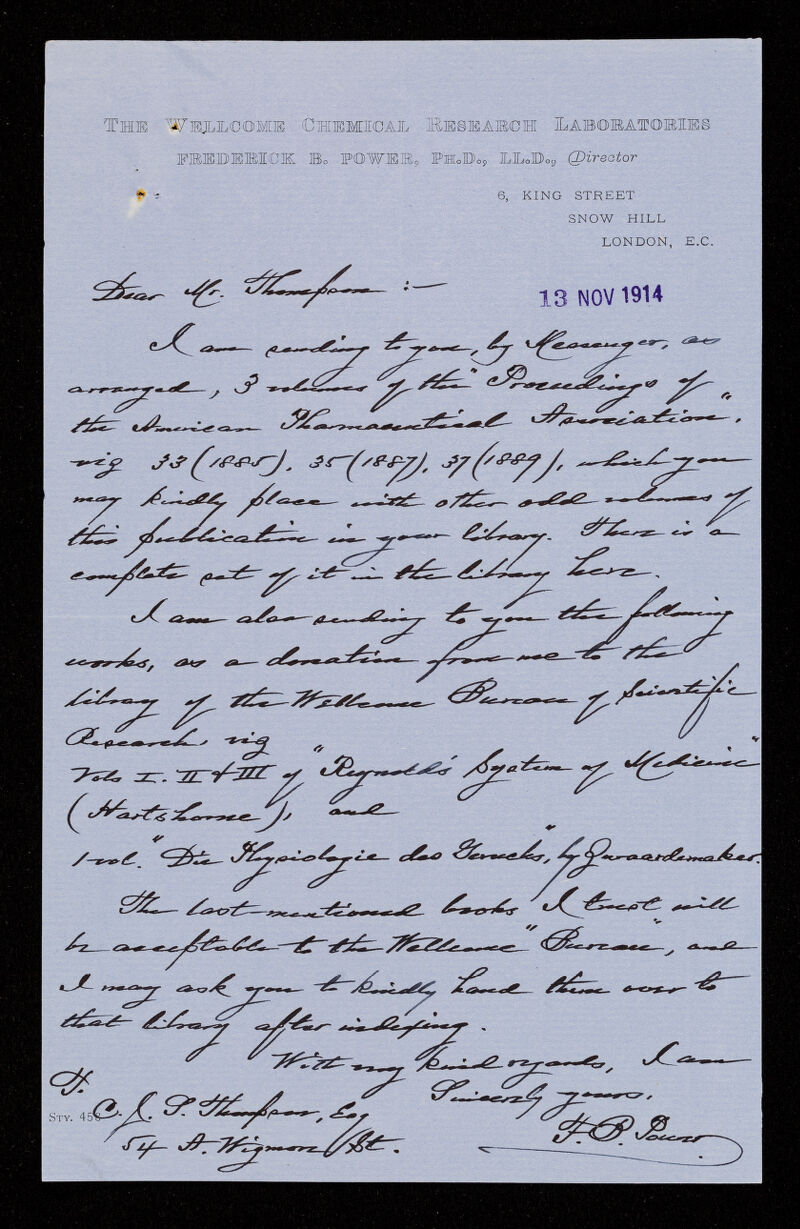 THE WELLCOME CHEMICAL RESEARCH LABORATORIES
FREDERICK B. POWER, PH.D., LL.D., Director
6, KING STREET
SNOW HILL
LONDON, E.C.
Dear Mr. Thompson :—
13 NOV 1914
I am sending to you, by Messenger, as
arranged, 3 volumes of the "Proceedings of
the American Pharmaceutical Association",
viz 33 (1885), 35 (1887), 37 (1889), which you
may kindly place with other odd volumes of
this publication in your library. There is a
complete set of it in the library here.
I am also sending to you the following
works, as a donation from me to the
library of the Wellcome Bureau of Scientific
Research, viz
Vols I. II & III of "Reynolds's System of Medicine"
(Hartshorne), and
1 vol. "Die Physiologie des Geruchs", by Zwaardemaker.
The last-mentioned books I trust will
be acceptable to the Wellcome "Bureau", and
I may ask you to kindly hand them over to
that library after indexing.
With my kind regards, I am
Sincerely yours,
F. B. Power
To.
C. J. S. Thompson, Esq
54 A. Wigmore St.
STY. 458